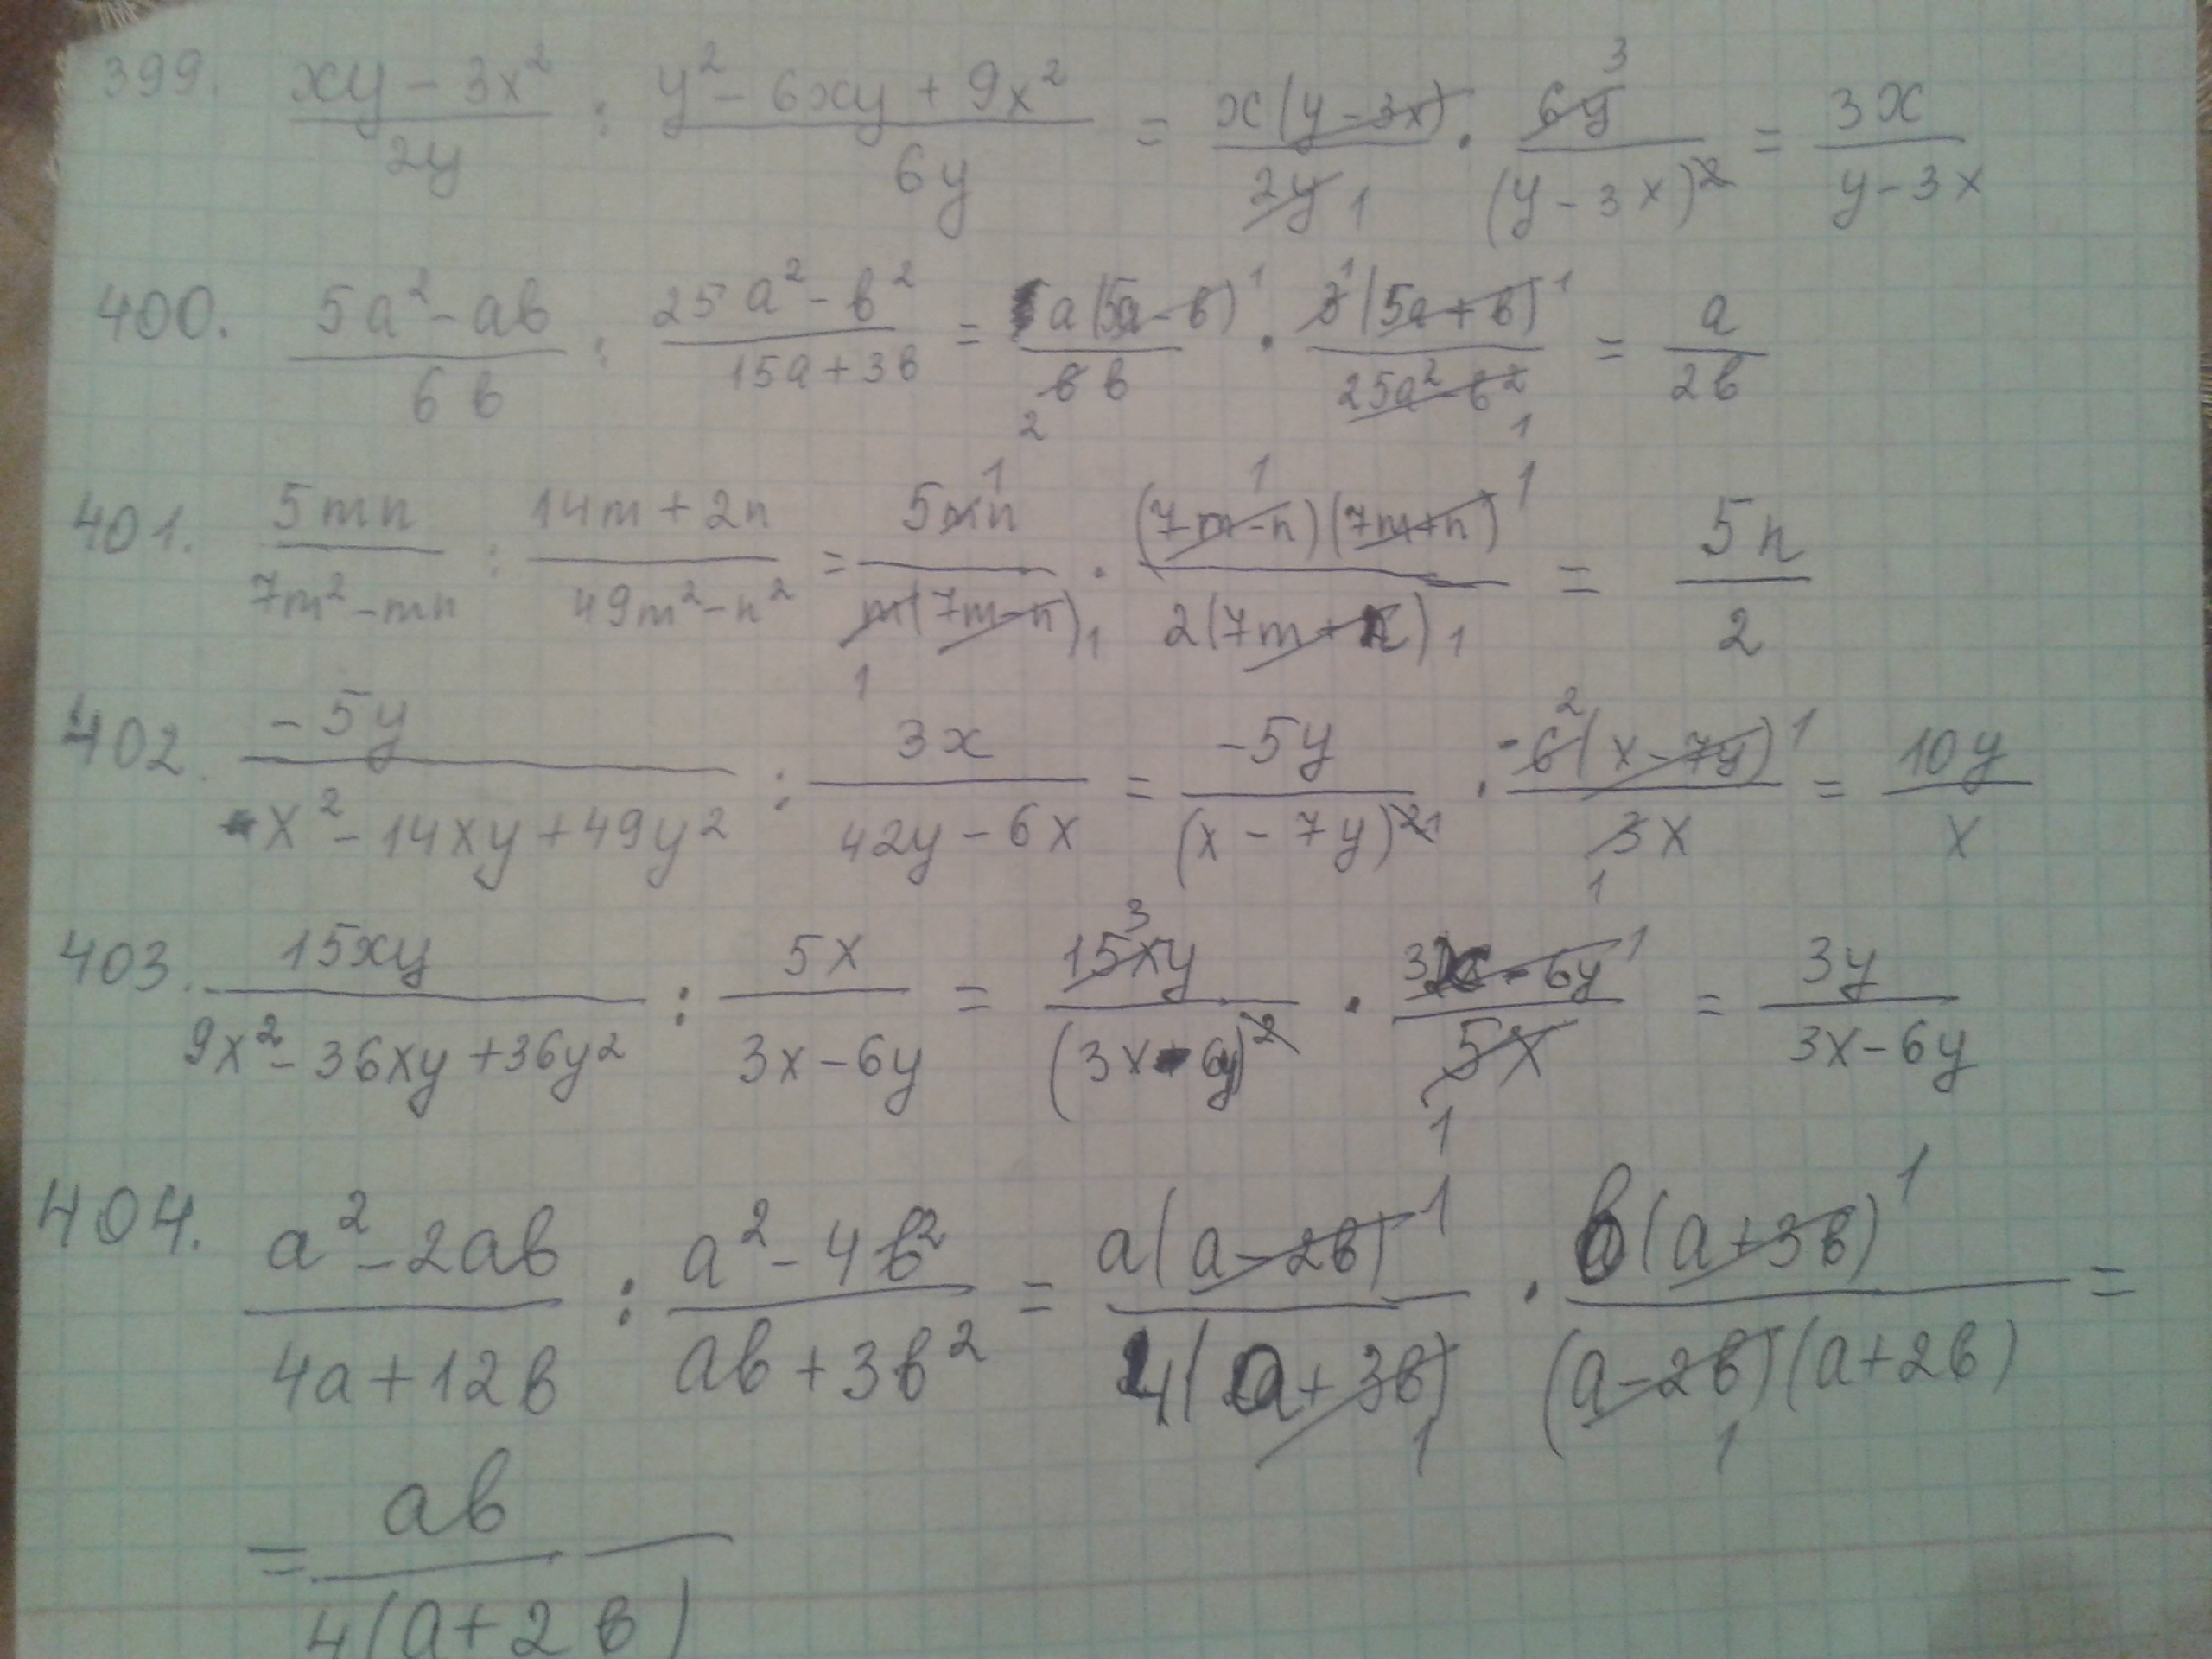 399. (xy - 3x²)/(2y) : (y² - 6xy + 9x²)/(6y) = (x(y - 3x))/(2y 1) · (6y 3)/((y - 3x)²) = (3x)/(y - 3x)
400. (5a² - aв)/(6в) : (25a² - в²)/(15a + 3в) = (a(5a - в) 1)/(6в 2) · (3 1 (5a + в) 1)/(25a² - в² 1) = a/(2в)
401. (5mn)/(7m² - mn) : (14m + 2n)/(49m² - n²) = (5mn 1)/(m(7m - n) 1 1) · ((7m - n) 1 (7m + n) 1)/(2(7m + n) 1) = (5n)/2
402. (-5y)/(x² - 14xy + 49y²) : (3x)/(42y - 6x) = (-5y)/((x - 7y)² 1) · (-6 2 (x - 7y) 1)/(3x 1) = (10y)/x
403. (15xy)/(9x² - 36xy + 36y²) : (5x)/(3x - 6y) = (15xy 3)/((3x - 6y)²) · (3x - 6y 1)/(5x 1) = (3y)/(3x - 6y)
404. (a² - 2aв)/(4a + 12в) : (a² - 4в²)/(aв + 3в²) = (a(a - 2в) 1)/(4(a + 3в) 1) · (в(a + 3в) 1)/((a - 2в)(a + 2в) 1) =
= (aв)/(4(a + 2в))